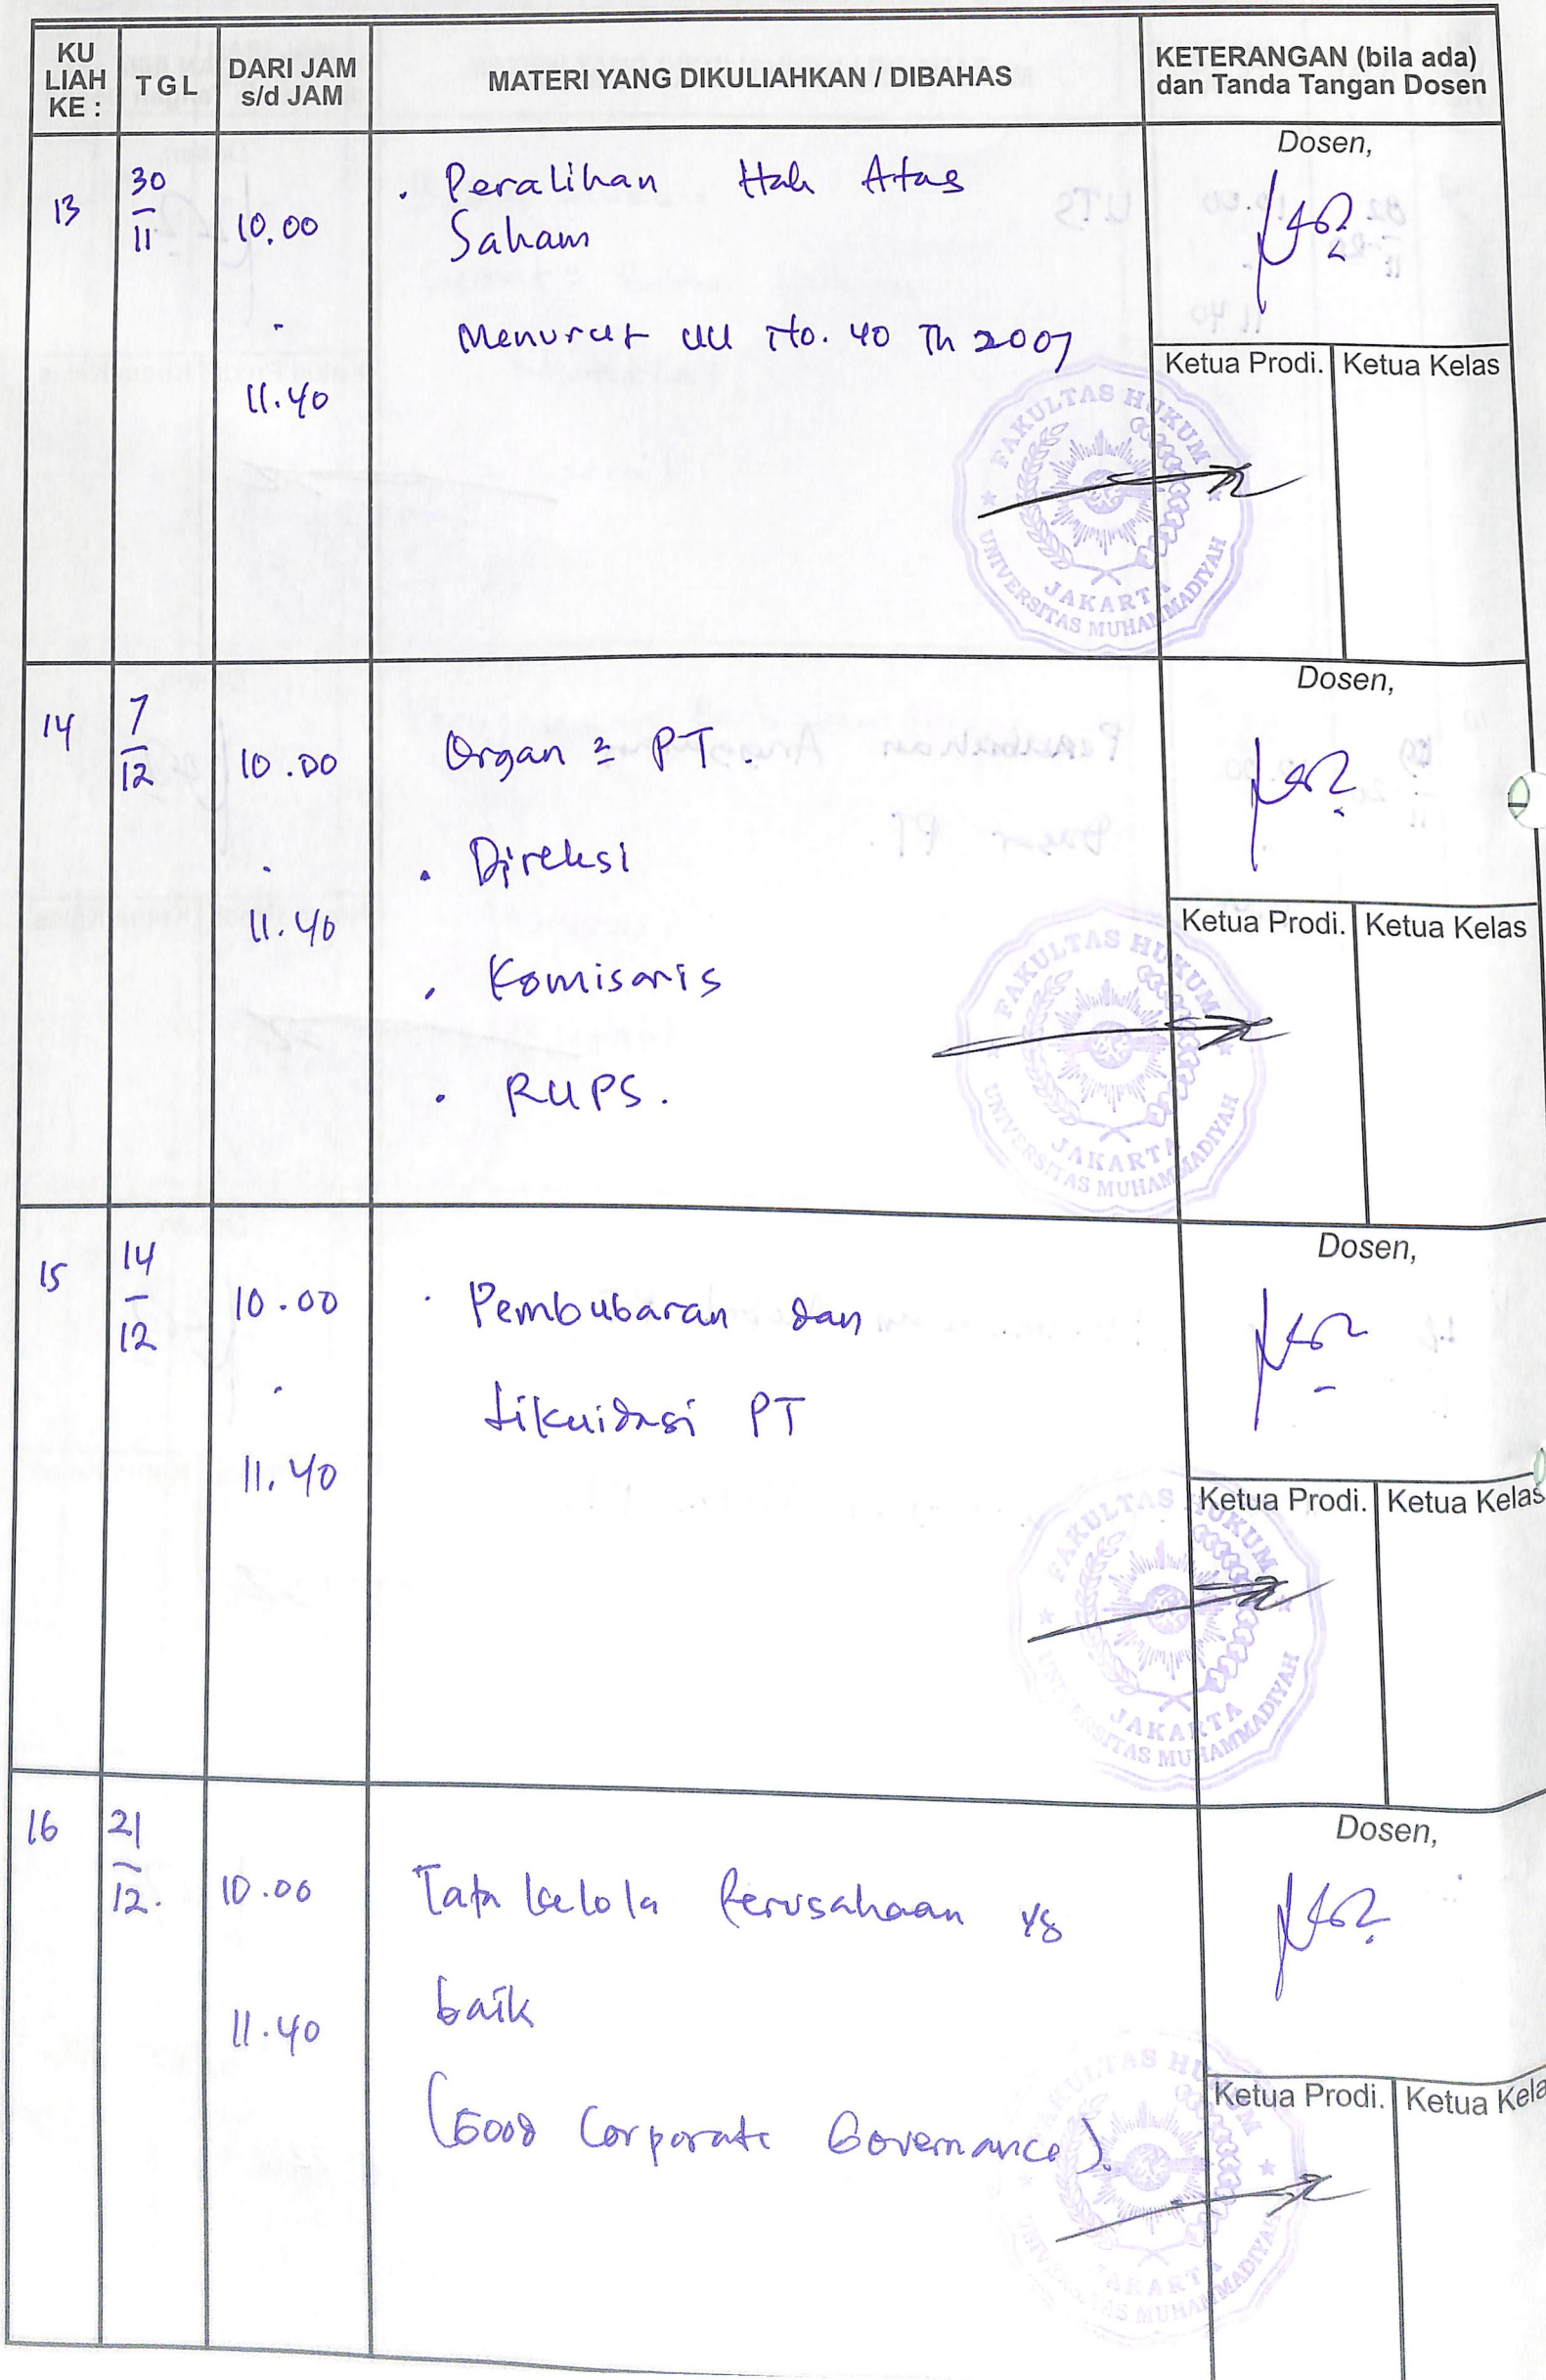 KU LIAH KE :
TGL
DARI JAM s/d JAM
MATERI YANG DIKULIAHKAN / DIBAHAS
KETERANGAN (bila ada) dan Tanda Tangan Dosen
13
30
11
10.00
-
11.40
. Peralihan Hak Atas
Saham
Menurut UU No. 40 Th 2007
Dosen,
Ketua Prodi.
Ketua Kelas
FAKULTAS HUKUM
JAKARTA
UNIVERSITAS MUHAMMADIYAH
14
7
12
10.00
-
11.40
Organ 2 PT.
. Direksi
. Komisaris
. RUPS.
Dosen,
Ketua Prodi.
Ketua Kelas
FAKULTAS HUKUM
JAKARTA
UNIVERSITAS MUHAMMADIYAH
15
14
12
10.00
-
11.40
. Pembubaran dan
Likuidasi PT
Dosen,
Ketua Prodi.
Ketua Kelas
FAKULTAS HUKUM
JAKARTA
UNIVERSITAS MUHAMMADIYAH
16
21
12.
10.00
11.40
Tata kelola Perusahaan yg
baik
(Good Corporate Governance).
Dosen,
Ketua Prodi.
Ketua Kela
FAKULTAS HUKUM
JAKARTA
UNIVERSITAS MUHAMMADIYAH